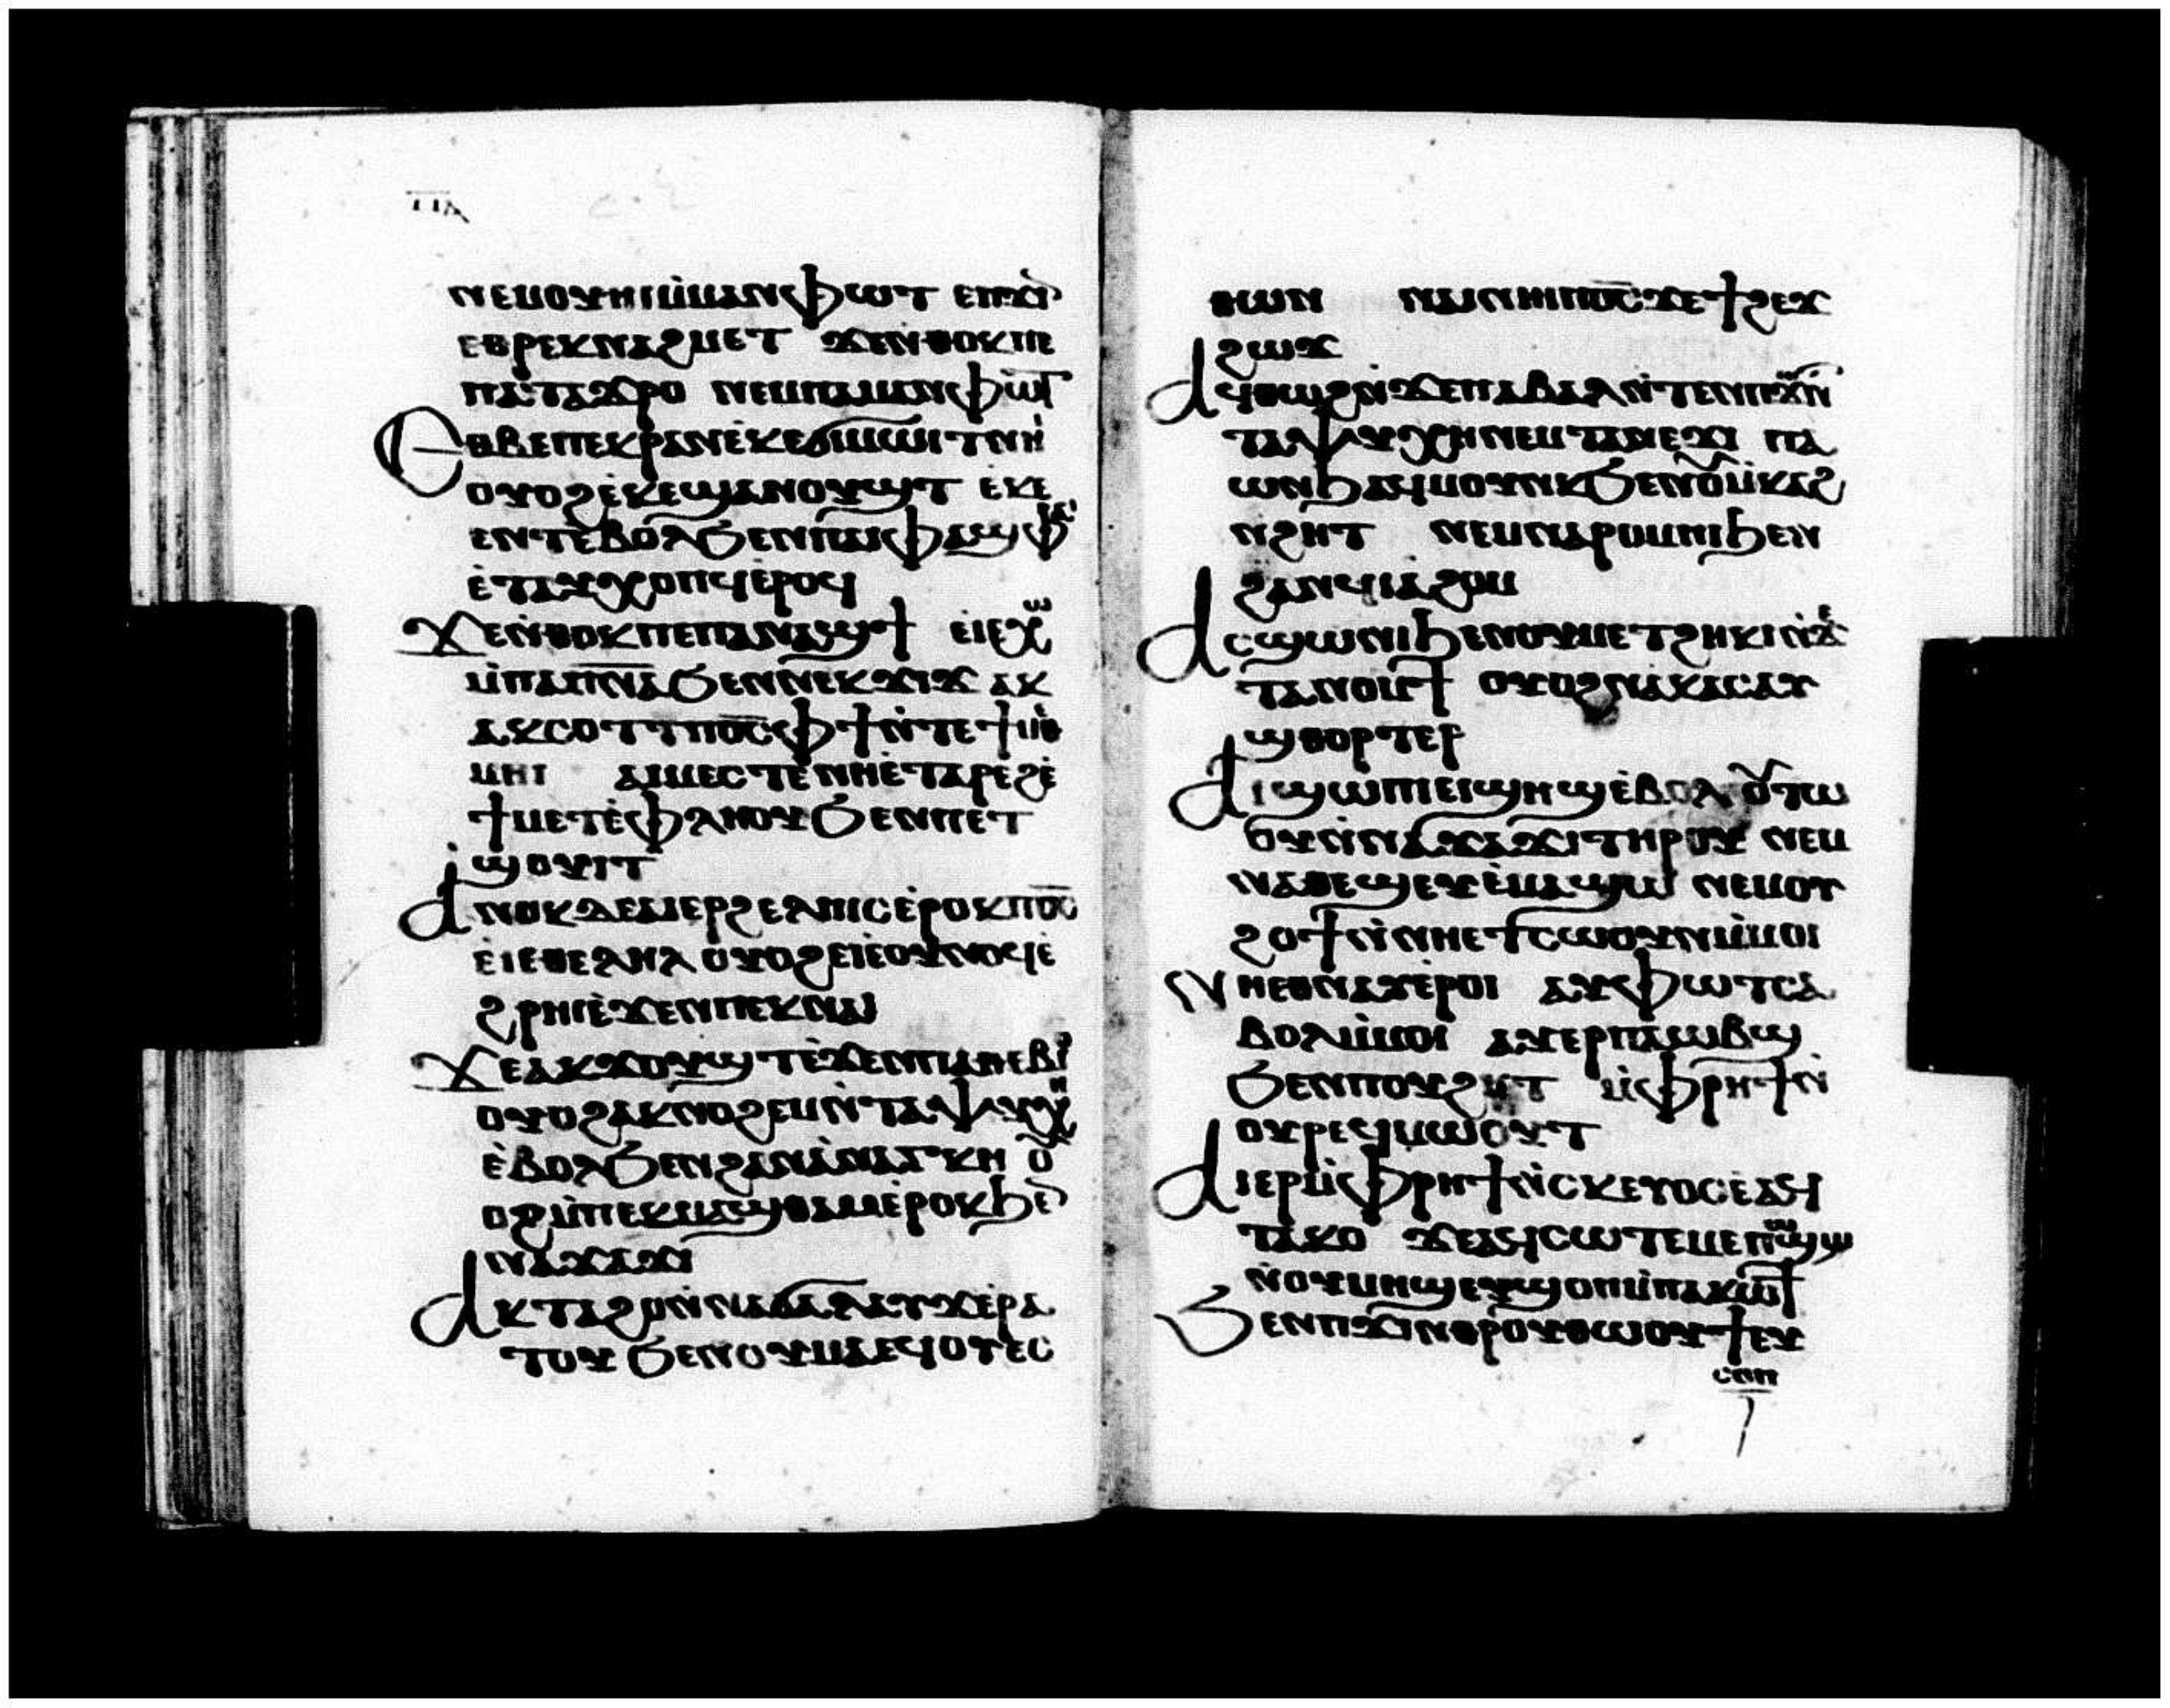 ⲡⲁ
ⲛⲉⲙⲟⲩⲏⲓⲙ̇ⲙⲁⲛⲫⲱⲧ ⲉⲡϫⲓⲛ
ⲉⲑⲣⲉⲕⲛⲁϩⲙⲉⲧ ϫⲉⲛ̇ⲑⲟⲕⲡⲉ
ⲡⲁⲧⲁϫⲣⲟ ⲛⲉⲙⲡⲁⲙⲁⲛⲫⲱⲧ
Ⲉⲑⲃⲉⲡⲉⲕⲣⲁⲛⲉ̇ⲕⲉϭⲓⲙⲱⲓⲧⲛⲏⲓ
ⲟⲩⲟϩⲉ̇ⲕⲉϣⲁⲛⲟⲩϣⲧ ⲉⲕⲉ
ⲉⲛⲧⲉ̇ⲃⲟⲗϧⲉⲛⲡⲁⲓⲫⲁϣⲫⲁⲓ
ⲉ̇ⲧⲁⲩⲭⲟⲡϥⲉ̇ⲣⲟⲓ
Ϫⲉⲛ̇ⲑⲟⲕⲡⲉⲡⲁⲛⲁϣϯ ⲉⲓⲉⲭⲱ
ⲙ̇ⲡⲁⲡⲛ̅ⲁ̅ϧⲉⲛⲛⲉⲕϫⲓϫ ⲁⲕ
ⲁⲕⲥⲟⲧⲧⲡϭⲥ̅ⲫϯⲛ̇ⲧⲉϯⲙⲉⲑ
ⲙⲏⲓ ⲁⲕⲙⲉⲥⲧⲉ̇ⲛⲏⲉ̇ⲧⲁⲣⲉϩⲉ̇
ϯⲙⲉⲧⲉ̇ⲫⲗⲏⲟⲩϧⲉⲛⲡⲉⲧ
ϣⲟⲩⲓⲧ
Ⲁⲛⲟⲕⲇⲉⲁⲓⲉⲣϩⲉⲗⲡⲓⲥⲉ̇ⲣⲟⲕⲡϭⲥ̅
ⲉ̇ⲓⲉⲑⲉⲗⲏⲗ ⲟⲩⲟϩⲉⲓⲉⲟⲩⲛⲟϥⲉ̇
ϩⲣⲏⲓⲉ̇ϫⲉⲛⲡⲉⲕⲛⲁⲓ
Ϫⲉⲁⲕϫⲟⲩϣⲧⲉ̇ϫⲉⲛⲡⲁⲑⲉⲃⲓⲟ
ⲟⲩⲟϩⲁⲕⲛⲟϩⲉⲙⲛ̇ⲧⲁⲯⲩⲭⲏ
ⲉ̇ⲃⲟⲗϧⲉⲛϩⲁⲛⲁ̇ⲛⲁⲅⲕⲏ ⲟⲩ
ⲟϩⲙ̇ⲡⲉⲕⲙⲁϣⲑⲁⲙⲉ̇ⲣⲟⲓϧⲉⲛ
ⲛⲁϫⲁϫⲓ
Ⲁⲕⲧⲁϩⲟⲛ̇ⲛⲁϭⲁⲗⲁⲩϫⲉ̇ⲣⲁ
ⲧⲟⲩ ϧⲉⲛⲟⲩⲙⲁⲉϥⲟⲩⲉⲥ
ⲑⲱⲛ ⲛⲁⲓⲛⲏⲓⲡϭⲥ̅ϫⲉϯϩⲉϫ
ϩⲱϫ
Ⲁϥⲑⲱϩⲛ̇ϫⲉⲡⲁⲃⲁⲗⲛ̇ⲧⲉⲛⲡϫⲱⲛⲧ
ⲧⲁⲯⲩⲭⲏⲛⲉⲙⲧⲁⲛⲉϫⲓ ⲡⲁ
ⲱⲛϧⲁϥⲙⲟⲩⲛⲕϧⲉⲛⲟⲩⲙ̇ⲕⲁϩ
ⲛ̇ϩⲏⲧ ⲛⲉⲙⲛⲁⲣⲟⲙⲡⲓϧⲉⲛ
ϩⲁⲛϥⲓⲁ̇ϩⲟⲙ
Ⲁⲥϣⲱⲛⲓϧⲉⲛⲟⲩⲙⲉⲧϩⲏⲕⲓⲛ̇ϫⲉ
ⲧⲁⲛⲟⲙϯ ⲟⲩⲟϩⲛⲁⲕⲁⲥⲁⲩ
ϣⲑⲟⲣⲧⲉⲣ
Ⲁⲓϣⲱⲡⲓⲉⲓϣⲏϣⲉ̇ⲃⲟⲗ ⲟⲩⲧⲱ
ⲟⲩⲛ̇ⲛⲁϫⲁϫⲓⲧⲏⲣⲟⲩ ⲛⲉⲙ
ⲛⲁⲑⲉϣⲉⲩⲉ̇ⲙⲁϣⲱ ⲛⲉⲙⲟⲩ
ϩⲟϯⲛ̇ⲛⲏⲉⲧⲥⲱⲟⲩⲛⲙ̇ⲙⲟⲓ
Ⲛⲏⲉⲑⲛⲁⲩⲉ̇ⲣⲟⲓ ⲁⲩⲫⲱⲧⲥⲁ
ⲃⲟⲗⲙ̇ⲙⲟⲓ ⲁⲩⲉⲣⲡⲁⲱⲃϣ
ϧⲉⲛⲡⲟⲩϩⲏⲧ ⲙ̇ⲫⲣⲏϯⲛ̇
ⲟⲩⲣⲉϥⲙⲱⲟⲩⲧ
Ⲁⲓⲉⲣⲙ̇ⲫⲣⲏϯⲛ̇ⲥⲕⲉⲩⲟⲥⲉ̇ⲁϥ
ⲧⲁⲕⲟ ϫⲉⲁⲓⲥⲱⲧⲉⲙⲉⲡϣⲱϣ
ⲛ̇ⲟⲩⲙⲏϣⲉⲩϣⲟⲡⲙ̇ⲡⲁⲕⲱϯ
Ϧⲉⲛⲡϫⲓⲛⲑⲣⲟⲩⲑⲱⲟⲩϯⲉⲩ
ⲥⲟⲡ